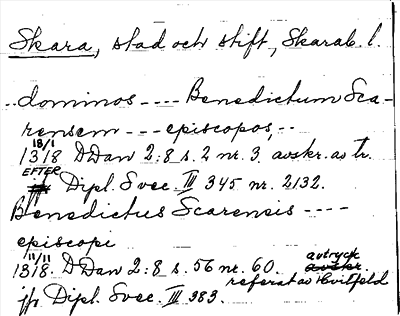 Skara, stad och stift, Skarab. l.
..dominos ---- Benedictum Sca-
rensem --- episcopos,--
18/1
1318 DDan 2:8 s. 2 nr. 3. avskr. av tr.
EFTER
Dipl. Svec. III 345 nr. 2132.
Benedictus Scarensis ----
episcopi
11/11 avtryck
1318. DDan 2:8 s. 56 nr. 60. avskr.
referat av Hvitfeld
jfr Dipl. Svec. III 383.